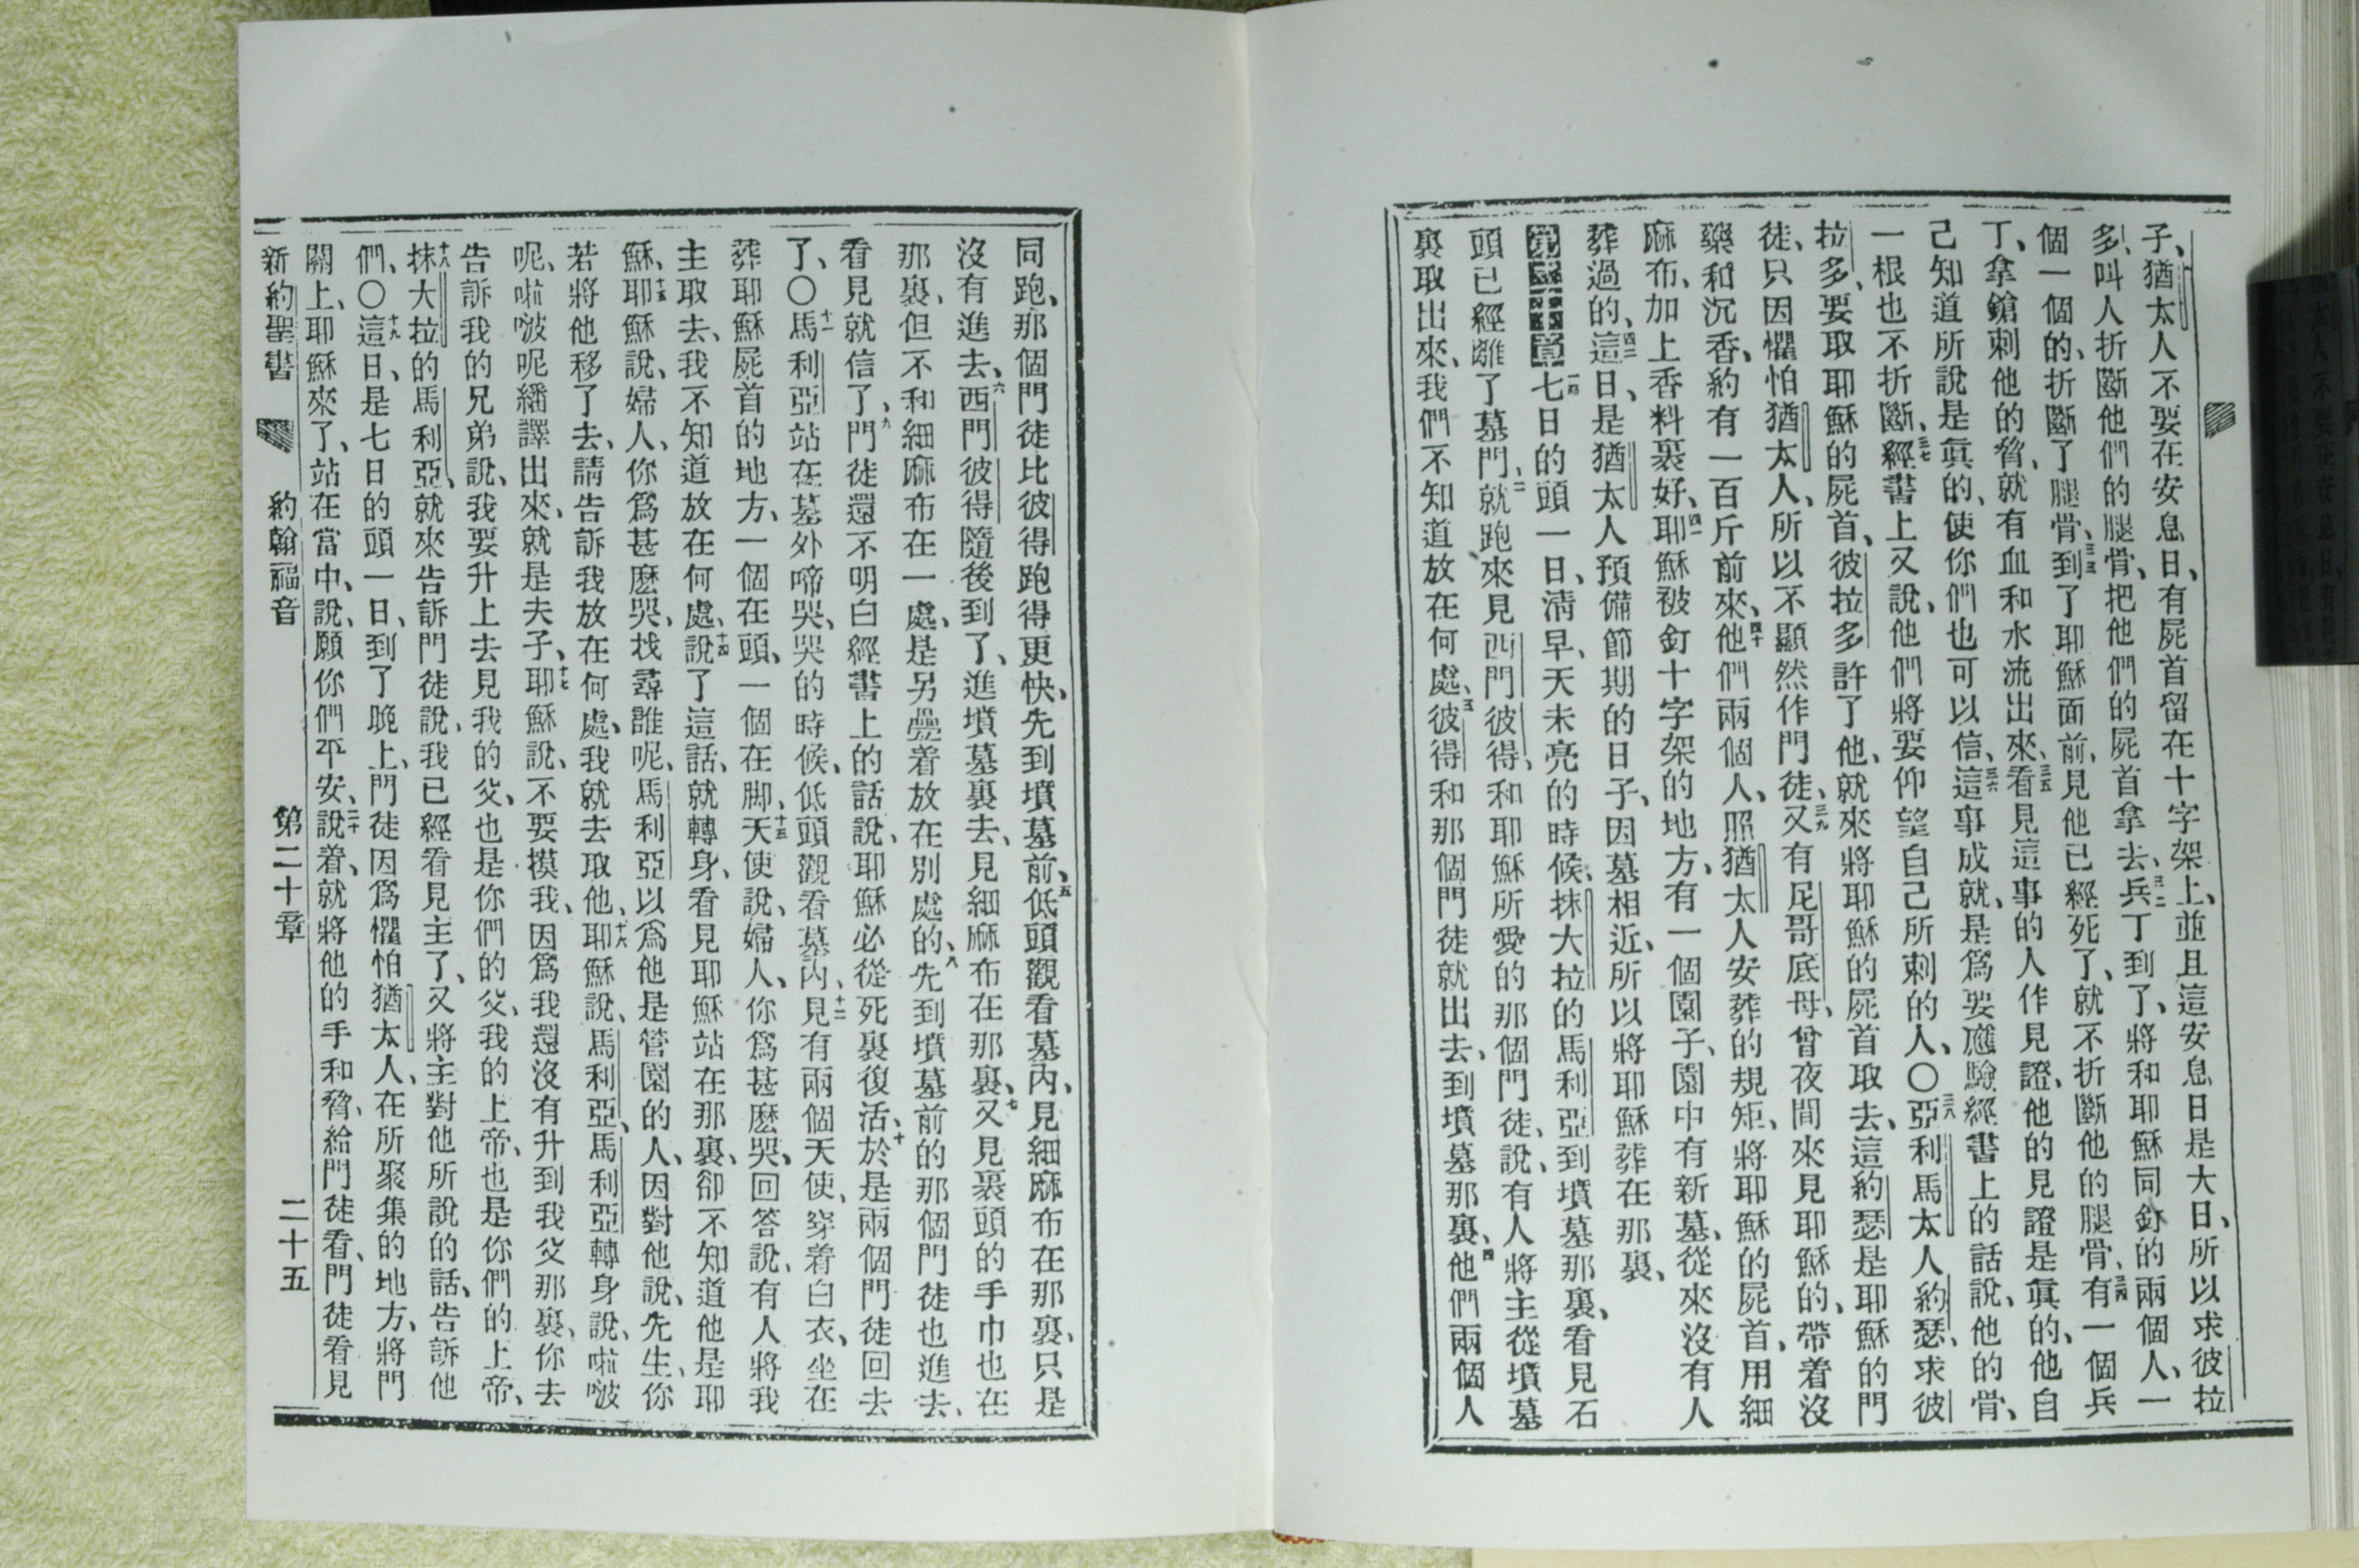 子、猶太人不要在安息日、有屍首留在十字架上、並且這安息日是大日、所以求彼拉
多、叫人折斷他們的腿骨、把他們的屍首拿去、三二兵丁到了、將和耶穌同釘的兩個人、一
個一個的、折斷了腿骨、三三到了耶穌面前、見他已經死了、就不折斷他的腿骨、三四有一個兵
丁、拿鎗刺他的脅、就有血和水流出來、三五看見這事的人作見證、他的見證是眞的、他自
己知道所說是眞的、使你們也可以信、三六這事成就、是爲要應驗經書上的話說、他的骨、
一根也不折斷、三七經書上又說、他們將要仰望自己所刺的人、〇三八亞利馬太人約瑟、求彼
拉多、要取耶穌的屍首、彼拉多許了他、就來將耶穌的屍首取去、這約瑟是耶穌的門
徒、只因懼怕猶太人、所以不顯然作門徒、三九又有尼哥底母、曾夜間來見耶穌的、帶着沒
藥和沉香、約有一百斤前來、四十他們兩個人、照猶太人安葬的規矩、將耶穌的屍首、用細
麻布、加上香料裹好、四一耶穌被釘十字架的地方、有一個園子、園中有新墓、從來沒有人
葬過的、四二這日、是猶太人預備節期的日子、因墓相近、所以將耶穌葬在那裏、
第二十章 一七日的頭一日、淸早、天未亮的時候、抹大拉的馬利亞到墳墓那裏、看見石
頭已經離了墓門、二就跑來見西門彼得、和耶穌所愛的那個門徒、說、有人將主從墳墓
裏取出來、我們不知道放在何處、三彼得和那個門徒就出去、到墳墓那裏、四他們兩個人
同跑、那個門徒比彼得跑得更快、先到墳墓前、五低頭觀看墓內、見細麻布在那裏、只是
沒有進去、六西門彼得隨後到了、進墳墓裏去、見細麻布在那裏、七又見裹頭的手巾也在
那裏、但不和細麻布在一處、是另疊着放在別處的、八先到墳墓前的那個門徒也進去、
看見就信了、九門徒還不明白經書上的話說、耶穌必從死裏復活、十於是兩個門徒回去
了、〇十一馬利亞站在墓外啼哭、哭的時候、低頭觀看墓內、十二見有兩個天使、穿着白衣、坐在
葬耶穌屍首的地方、一個在頭、一個在脚、十三天使說、婦人、你爲甚麽哭、回答說、有人將我
主取去、我不知道放在何處、十四說了這話、就轉身、看見耶穌站在那裏、卻不知道他是耶
穌、十五耶穌說、婦人、你爲甚麽哭、找尋誰呢、馬利亞以爲他是管園的人、因對他說、先生、你
若將他移了去、請告訴我放在何處、我就去取他、十六耶穌說、馬利亞、馬利亞轉身說、啦啵
呢、啦啵呢繙譯出來、就是夫子、十七耶穌說、不要摸我、因爲我還沒有升到我父那裏、你去
告訴我的兄弟說、我要升上去見我的父、也是你們的父、我的上帝、也是你們的上帝、
十八抹大拉的馬利亞、就來告訴門徒說、我已經看見主了、又將主對他所說的話、告訴他
們、〇十九這日、是七日的頭一日、到了晚上、門徒因爲懼怕猶太人、在所聚集的地方、將門
關上、耶穌來了、站在當中、說、願你們平安、二十說着、就將他的手和脅、給門徒看、門徒看見
新約聖書 約翰福音 第二十章 二十五